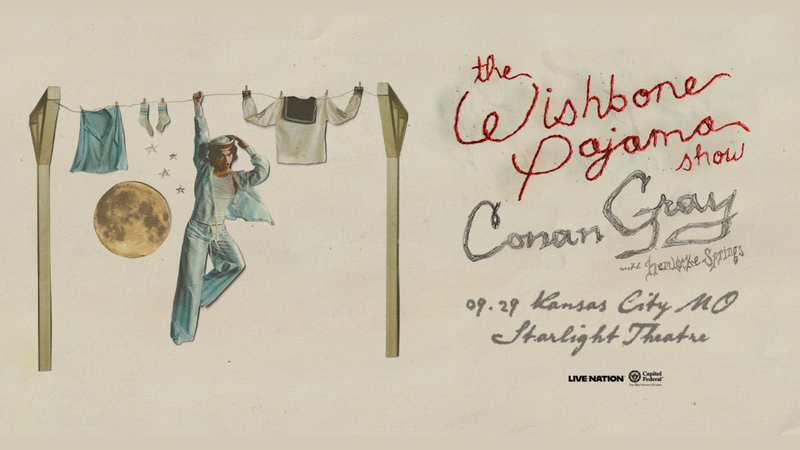 the
Wishbone
Pajama
show
Conan Gray
with Hemlocke Springs
09.29 Kansas City MO
Starlight Theatre
LIVE NATION Capitol Federal